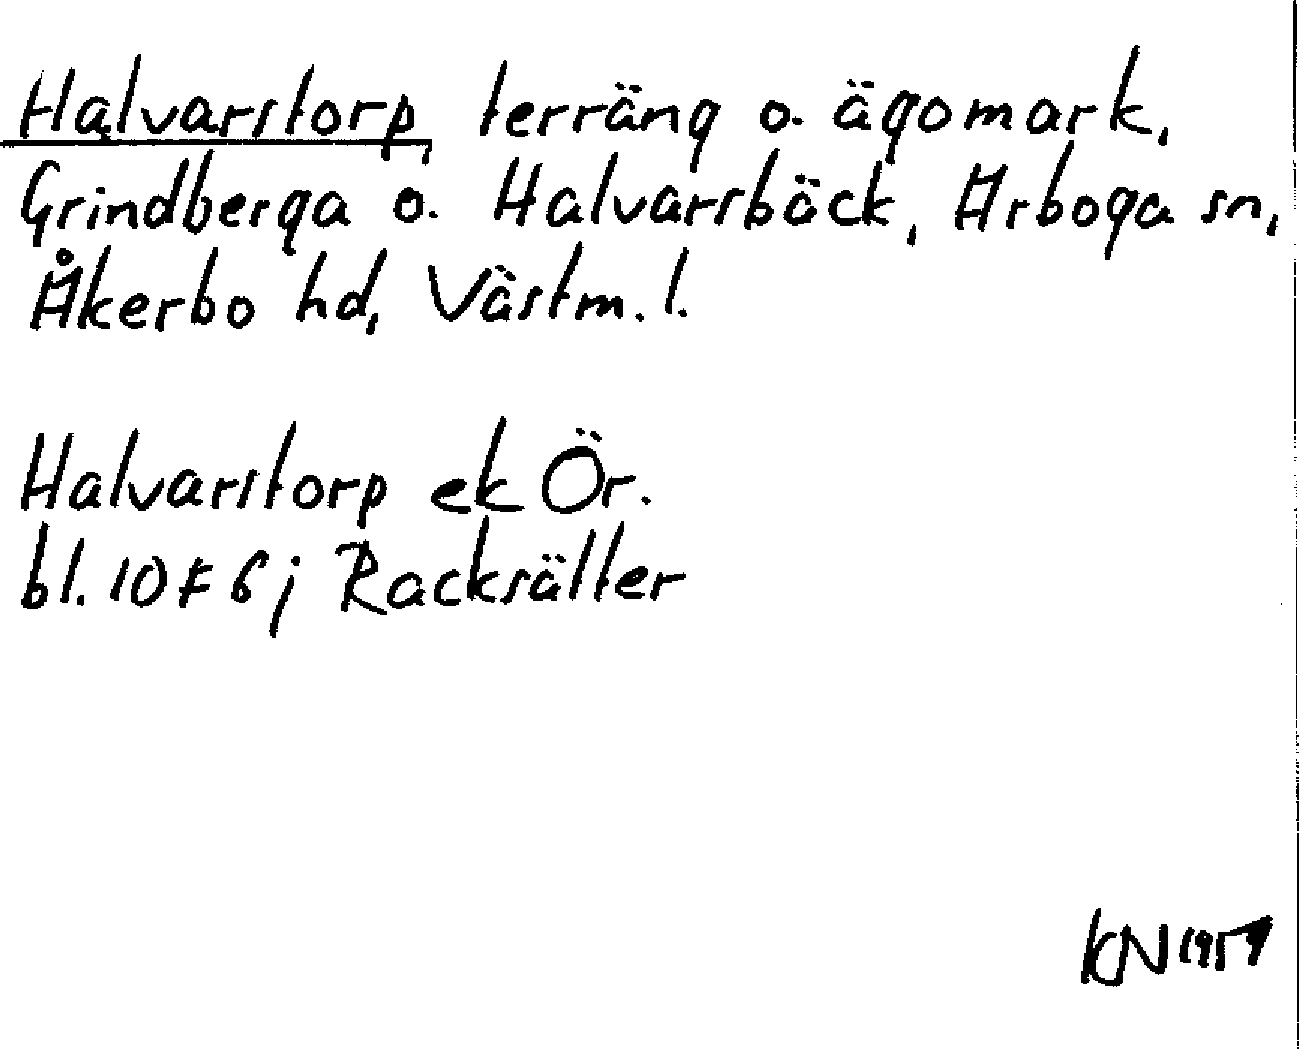 Halvarstorp, terräng o. ägomark,
Grindberga o. Halvarsbäck, Arboga sn,
Åkerbo hd, Västm. l.
Halvarstorp ek Ör.
bl. 10F6j Racksätter
KN